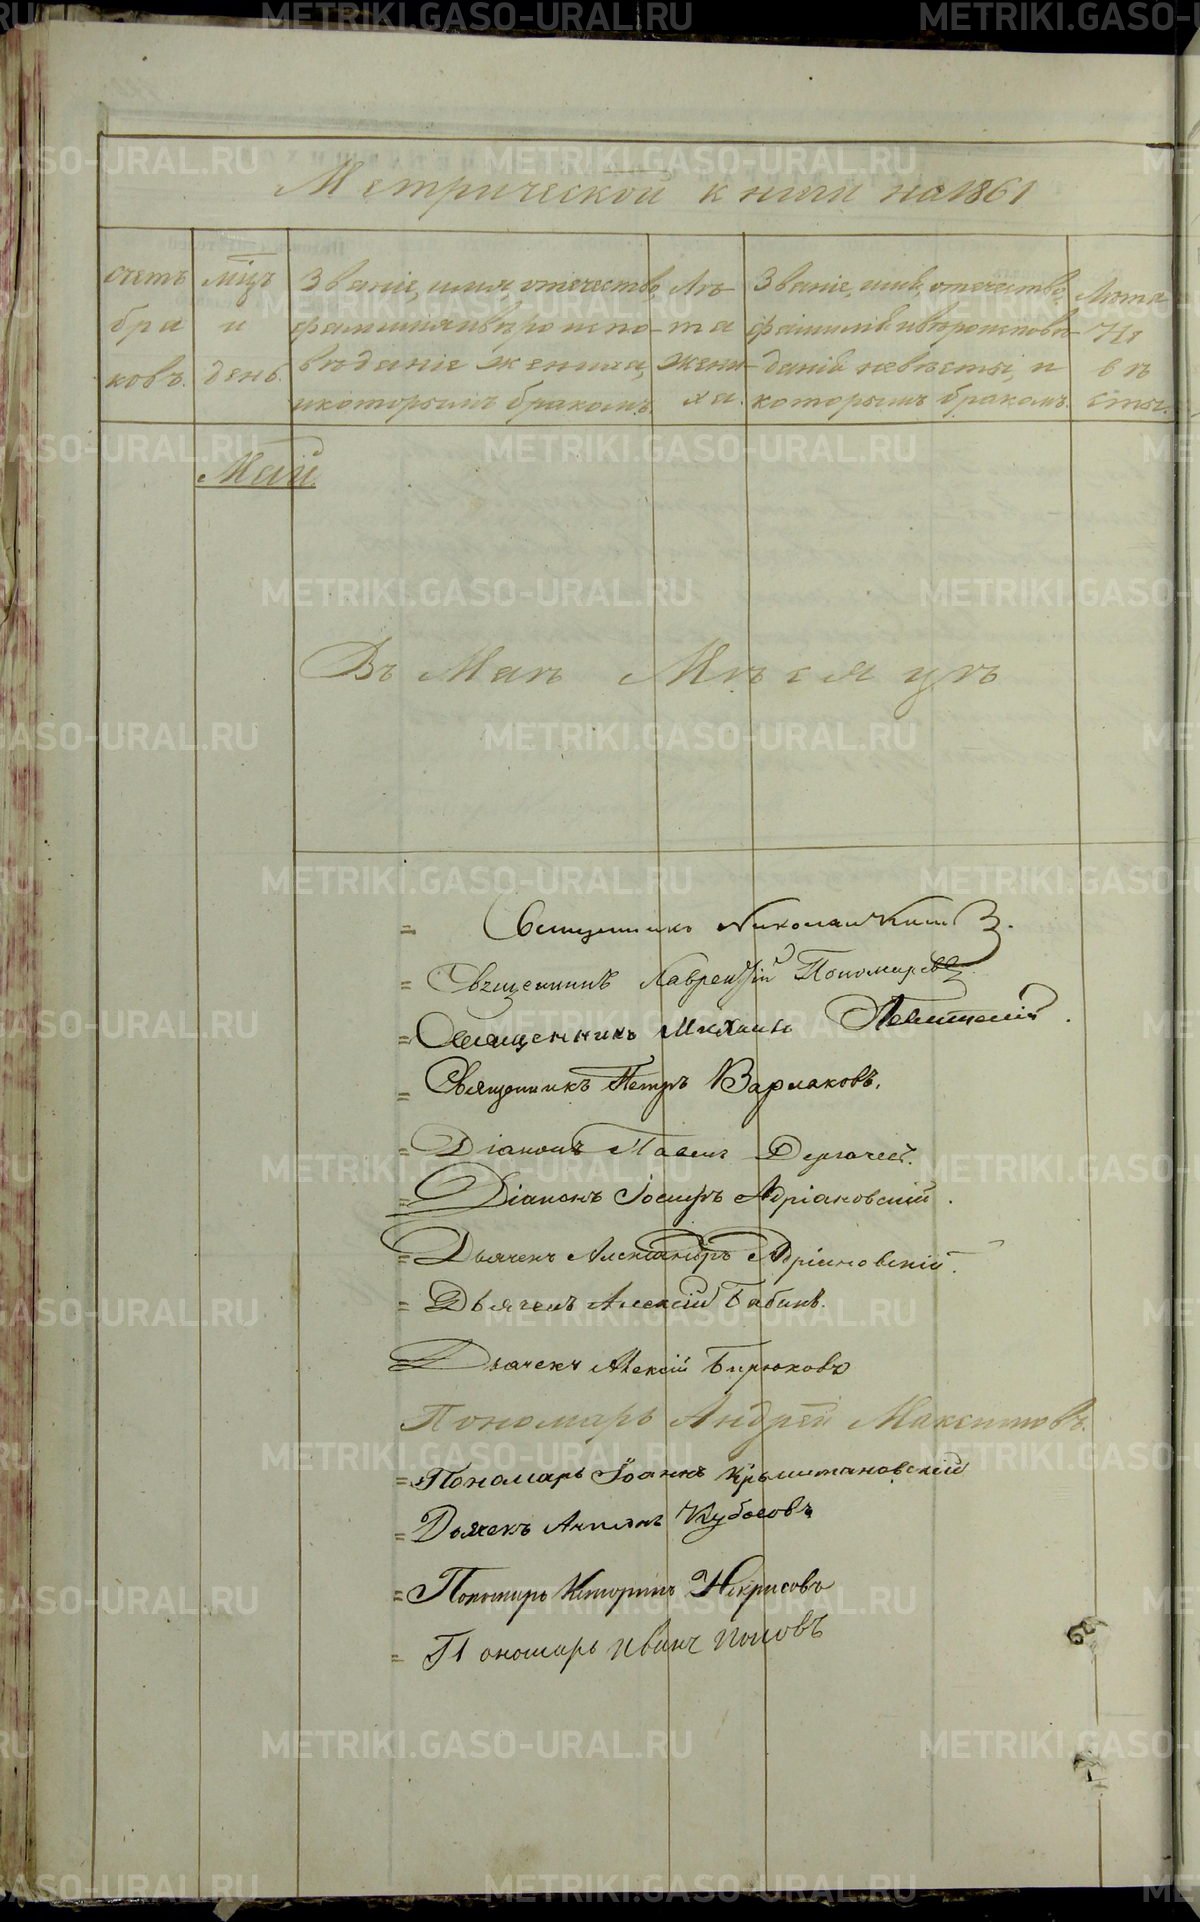 Метрической книги на 1861
счетъ бра ковъ.
мцъ и день.
Званіе, имя, отечество,
фамилія и вѣроиспо-
вѣданіе жениха,
и которымъ бракомъ.
Лѣ-
та
жени
ха.
Званіе, имя, отечество,
фамилія и вѣроисповѣ-
даніе невѣсты, и
которымъ бракомъ.
Лѣта
не
вѣ
сты.
Май.
Въ Маѣ Мѣсяцѣ
= Священникъ Николай
= Священникъ Лаврентій Пономаревъ
= Священникъ Михаилъ
= Священникъ Петръ Варлаковъ.
= Діаконъ Павелъ Дергачевъ.
= Діаконъ Іосифъ Адріановскій.
= Дьячекъ Александръ Адріановскій.
= Дьячекъ Алексій Бабинъ.
= Дьячекъ Алексій Бирюковъ
Пономарь Андрей Максимовъ.
= Пономарь Іоаннъ
= Дьячекъ Кубасовъ
= Пономарь Некрасовъ
= Пономарь Иванъ Поповъ
METRIKI.GASO-URAL.RU